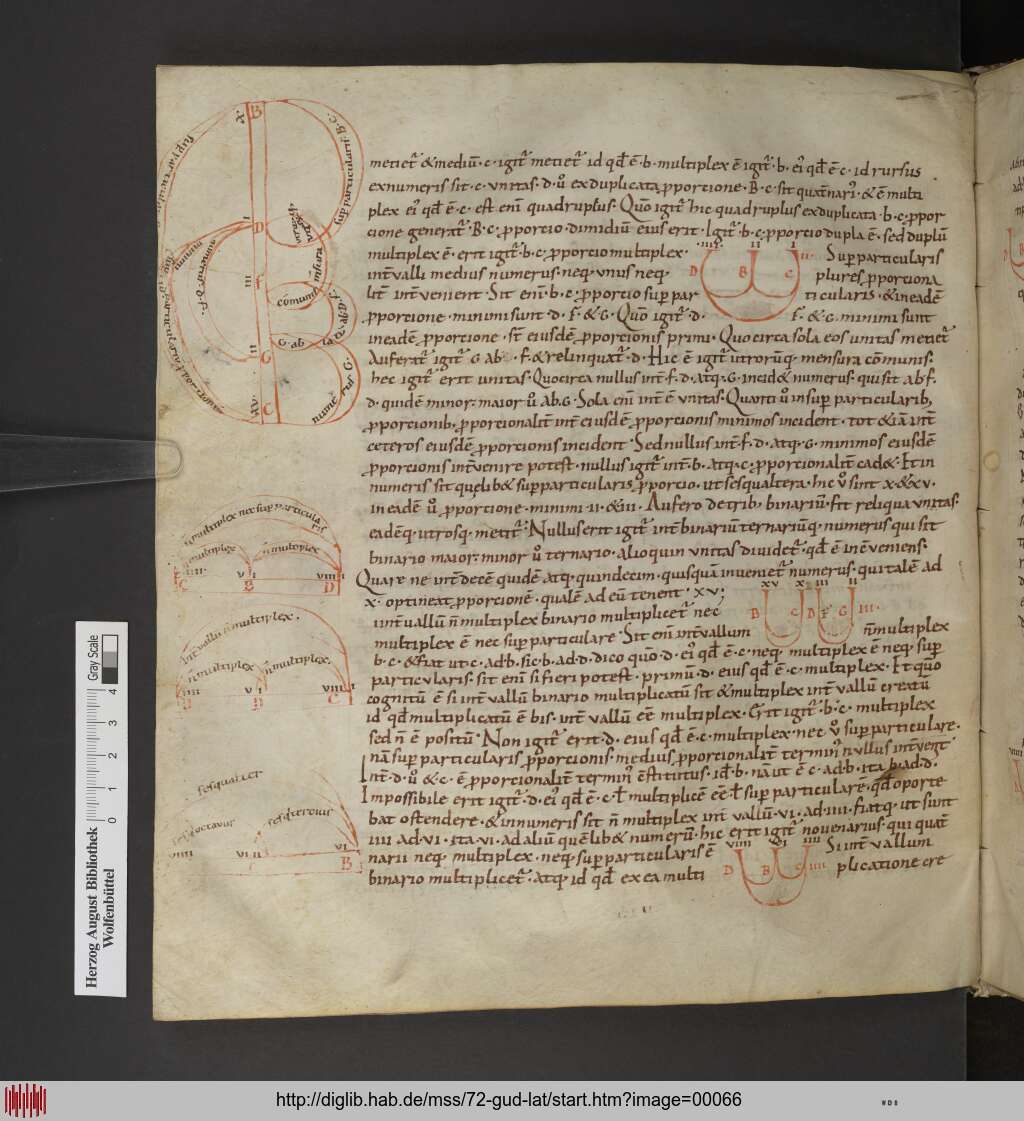 metiet̃ & mediũ · c · igit̃ metiet̃ id qđ ẽ · b · multiplex ẽ igit̃ · b · ei᷒ qđ ẽ c · id rursus
ex numeris sit · c · vnitas · d · ũ ex duplicata ꝓportione · B · c · sit quat̃nari᷒ · & ẽ multi
plex ei᷒ qđ ẽ · c · est enĩ quadruplus · Quõo igit̃ hic quadruplus ex duplicata · b · c · ꝓpor
cione generat̃ · B · c · ꝓporcio · dimidiũ eius erit · Igit̃ · b · c · ꝓporcio dupla ẽ · sed duplũ
multiplex ẽ · erit igit̃ · b · c · ꝓporcio multiplex ·
Suꝑparticularis
int̃ualli medius numerus · neq; vnus neq;
plures ꝓporciona
lit̃ int̃uenient · Sit enĩ · b · c · ꝓporcio suꝑ par
ticularis · & in eadẽ
ꝓporcione · minimi sunt · d · f · & G · Quõo igit̃ · d ·
f · & G · minimi sunt
in eadẽ ꝓporcione · st̃ eiusdẽ ꝓporcionis primi · Quocirca sola eos unitas metiet̃
Auferat̃ igit̃ G ab · f · & relinquat̃ · d · Hic ẽ igit̃ utrorũq; mensura cõmunis ·
hec igit̃ erit unitas · Quocirca nullus int̃ · f · d · atq; · G · incid& numerus · qui sit ab · f ·
d · quidẽ minor · maior ũ ab · G · Sola enĩ int̃ ẽ vnitas · Quanti ũ in suꝑ particularib;
ꝓporcionib; ꝓporcionalit̃ int̃ eiusdẽ ꝓporcionis minimos incident · tot & iã int̃
ceteros eiusdẽ ꝓporcionis incident · Sed nullus int̃ · f · d · atq; · G · minimos eiusdẽ
ꝓporcionis int̃uenire potest · nullus igit̃ int̃ · b · atq; · c · ꝓporcionalit̃ cad& · Et in
numeris sit quęlib& suꝑparticularis ꝓporcio · ut sesqualtera · hic ũ sint x · & xv ·
in eadẽ ũ ꝓporcione · minimi · ii · & iii · Aufero de trib; binariũ · fit reliqua vnitas ·
eadẽq; utrosq; metit̃ · Nullus erit igit̃ int̃ binariũ ternariũq; numerus qui sit
binario maior · minor ũ ternario · alioquin vnitas diuidet̃ · qđ ẽ inc̃ueniens ·
Quare ne int̃ decẽ quidẽ atq; quindecim · quisquã inueniet̃ numerus · qui talẽ ad
x · optineat ꝓporcionẽ · qualẽ ad eũ tenent · xv ;
i int̃uallũ ñ multiplex binario multiplicet̃ nec
multiplex ẽ nec suꝑ particulare · Sit enĩ int̃uallum
ñ multiplex
b · c · & fiat ut · c · ad · b · sic · b · ad · d · dico quõo · d · ei᷒ qđ ẽ · c · neq; multiplex ẽ neq; suꝑ
particularis · sit enĩ si fieri potest · primũ · d · eius qđ ẽ · c · multiplex · Et quõo
cognitũ ẽ si int̃uallũ binario multiplicatũ sit & multiplex int̃uallũ creatũ
id qđ multiplicatũ ẽ bis · int̃uallũ eẽ multiplex · Erit igit̃ · b · c · multiplex
sed ñ ẽ positũ · Non igit̃ erit · d · eius qđ ẽ · c · multiplex · nec ũ suꝑparticulare ·
nã suꝑ particularis ꝓporcionis · medius ꝓporcionalit̃ termin᷒ nullus int̃venit
Int̃ · d · ũ & · c · ẽ ꝓporcionalit̃ termin᷒ c̃stitutus · id · b · nã ut ẽ · c · ad · b · ita · b · ad · d ·
Impossibile erit igit̃ · d · ei᷒ qđ ẽ · c · ł multiplicẽ eẽ ł suꝑ particularẽ · qđ oporte
bat ostendere · & in numeris sit ñ multiplex int̃uallũ · vi · ad · iiii · fiatq; ut sunt
iiii · ad · vi · ita · vi · ad aliũ quẽlib& numerũ · hic erit igit̃ nouenarius · qui quat̃
narii neq; multiplex · neq; suꝑparticularis ẽ
Si int̃uallum
binario multiplicet̃ · atq; id qđ ex ea multi
plicatione cre
iiii ii i
D B C
xv x iii ii
B C D F G
viiii vi iiii
D B C
x B
D
iii f
ii G
xv C
cõmunis
ñ multiplex nec suꝑ particularis
ñ multiplex ñ multiplex
iiii · v i viiii
C B D
int̃uallũ ñ multiplex ·
ñ multiplex ñ multiplex
iiii v i viiii
D B C
sesqualter
sesq octauus sesq tercius
viiii vi ii vi
B
Herzog August Bibliothek
Wolfenbüttel
0 1 2 3 4
Gray Scale
http://diglib.hab.de/mss/72-gud-lat/start.htm?image=00066